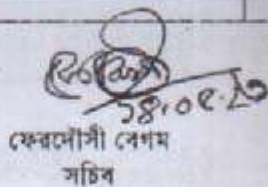 ১৪.০৫.২৩
ফেরদৌসী বেগম
সচিব